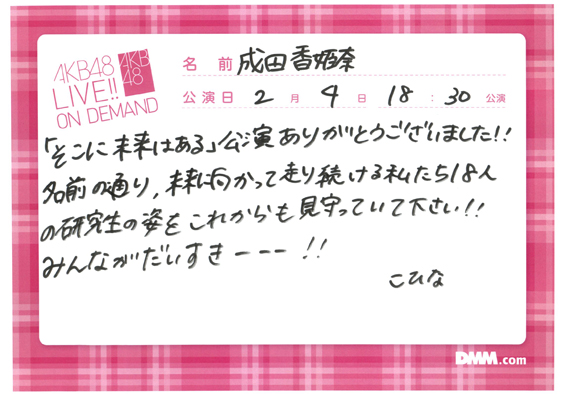 AKB48
LIVE!!
ON DEMAND
AKB
48
名前 成田香姫奈
公演日 2月4日 18:30 公演
「そこに未来はある」公演ありがとうございました!!
名前の通り、未来に向かって走り続ける私たち18人
の研究生の姿をこれからも見守っていて下さい!!
みんながだいすきーーー!!
こひな
DMM.com